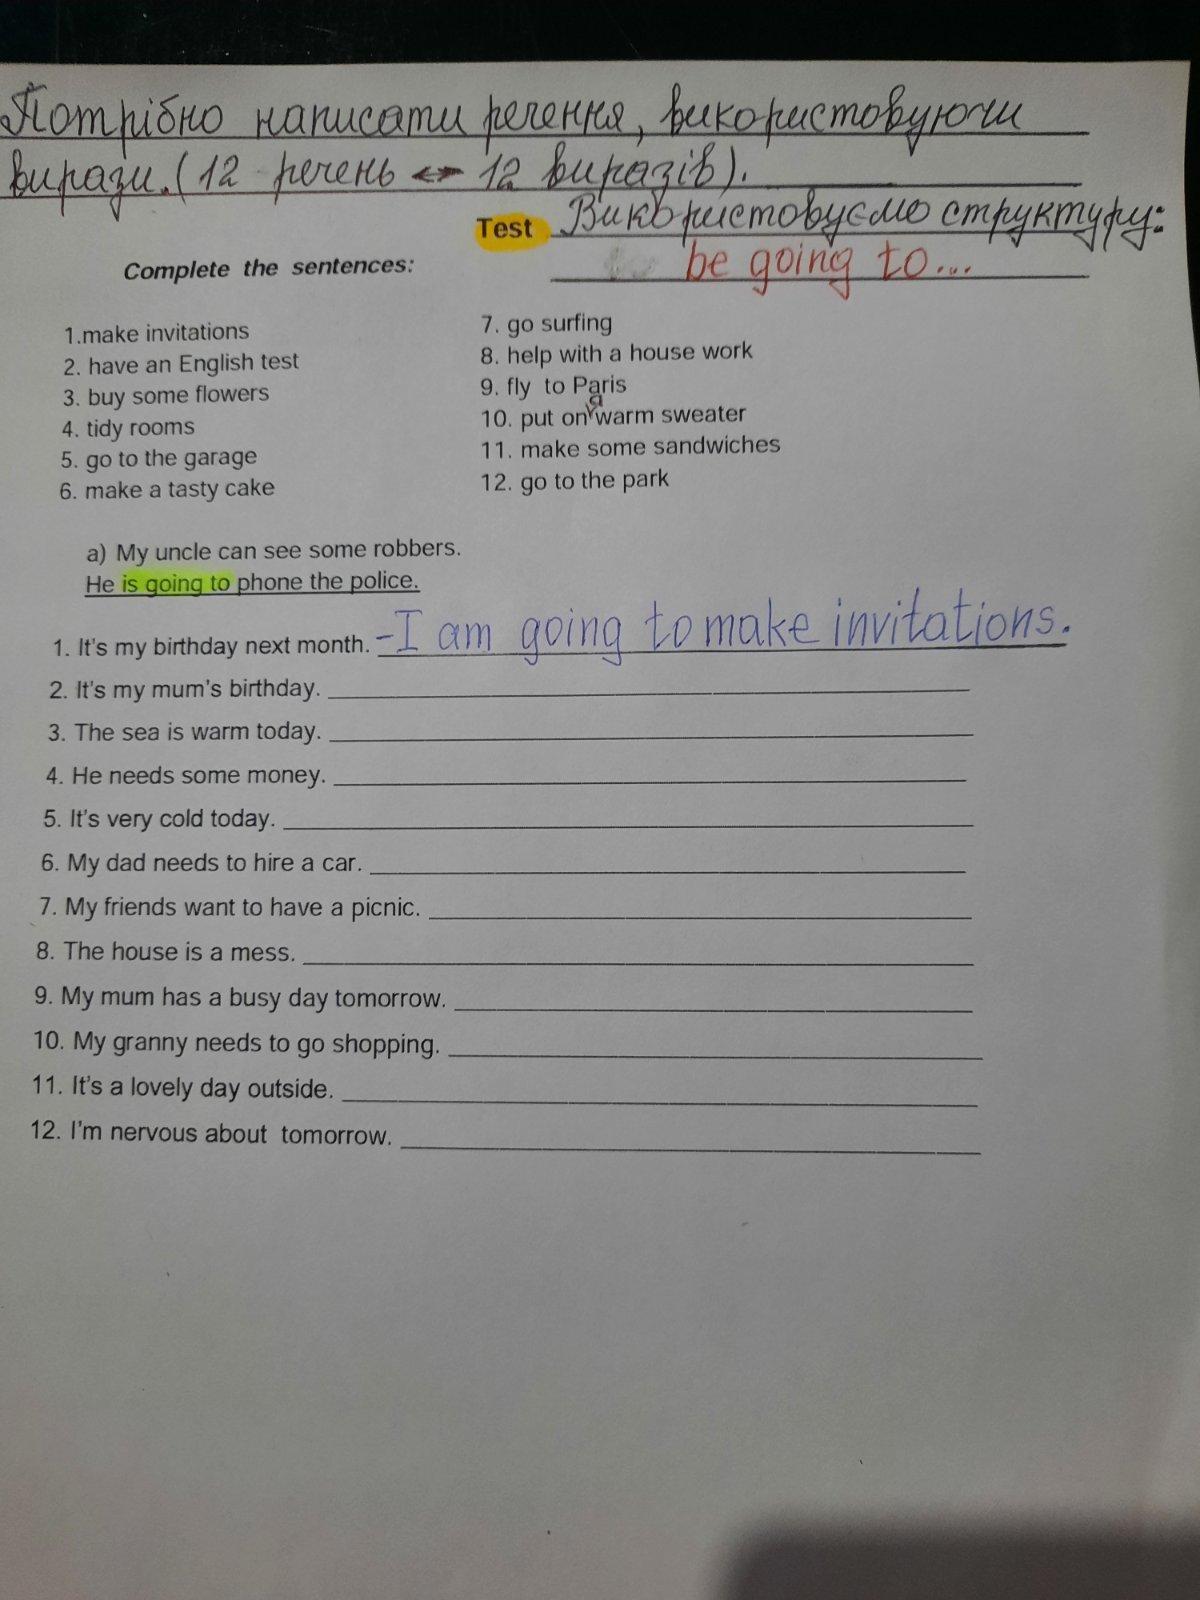 Потрібно написати речення, використовуючи
вирази. (12 речень ↔ 12 виразів).
Test Використовуємо структуру:
Complete the sentences: be going to...
1.make invitations
2. have an English test
3. buy some flowers
4. tidy rooms
5. go to the garage
6. make a tasty cake
7. go surfing
8. help with a house work
9. fly to Paris
10. put on a warm sweater
11. make some sandwiches
12. go to the park
a) My uncle can see some robbers.
He is going to phone the police.
1. It's my birthday next month. - I am going to make invitations.
2. It's my mum's birthday.
3. The sea is warm today.
4. He needs some money.
5. It's very cold today.
6. My dad needs to hire a car.
7. My friends want to have a picnic.
8. The house is a mess.
9. My mum has a busy day tomorrow.
10. My granny needs to go shopping.
11. It's a lovely day outside.
12. I'm nervous about tomorrow.